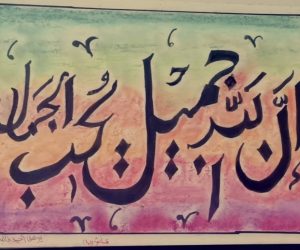 إنّ الله جميل يحب الجمال